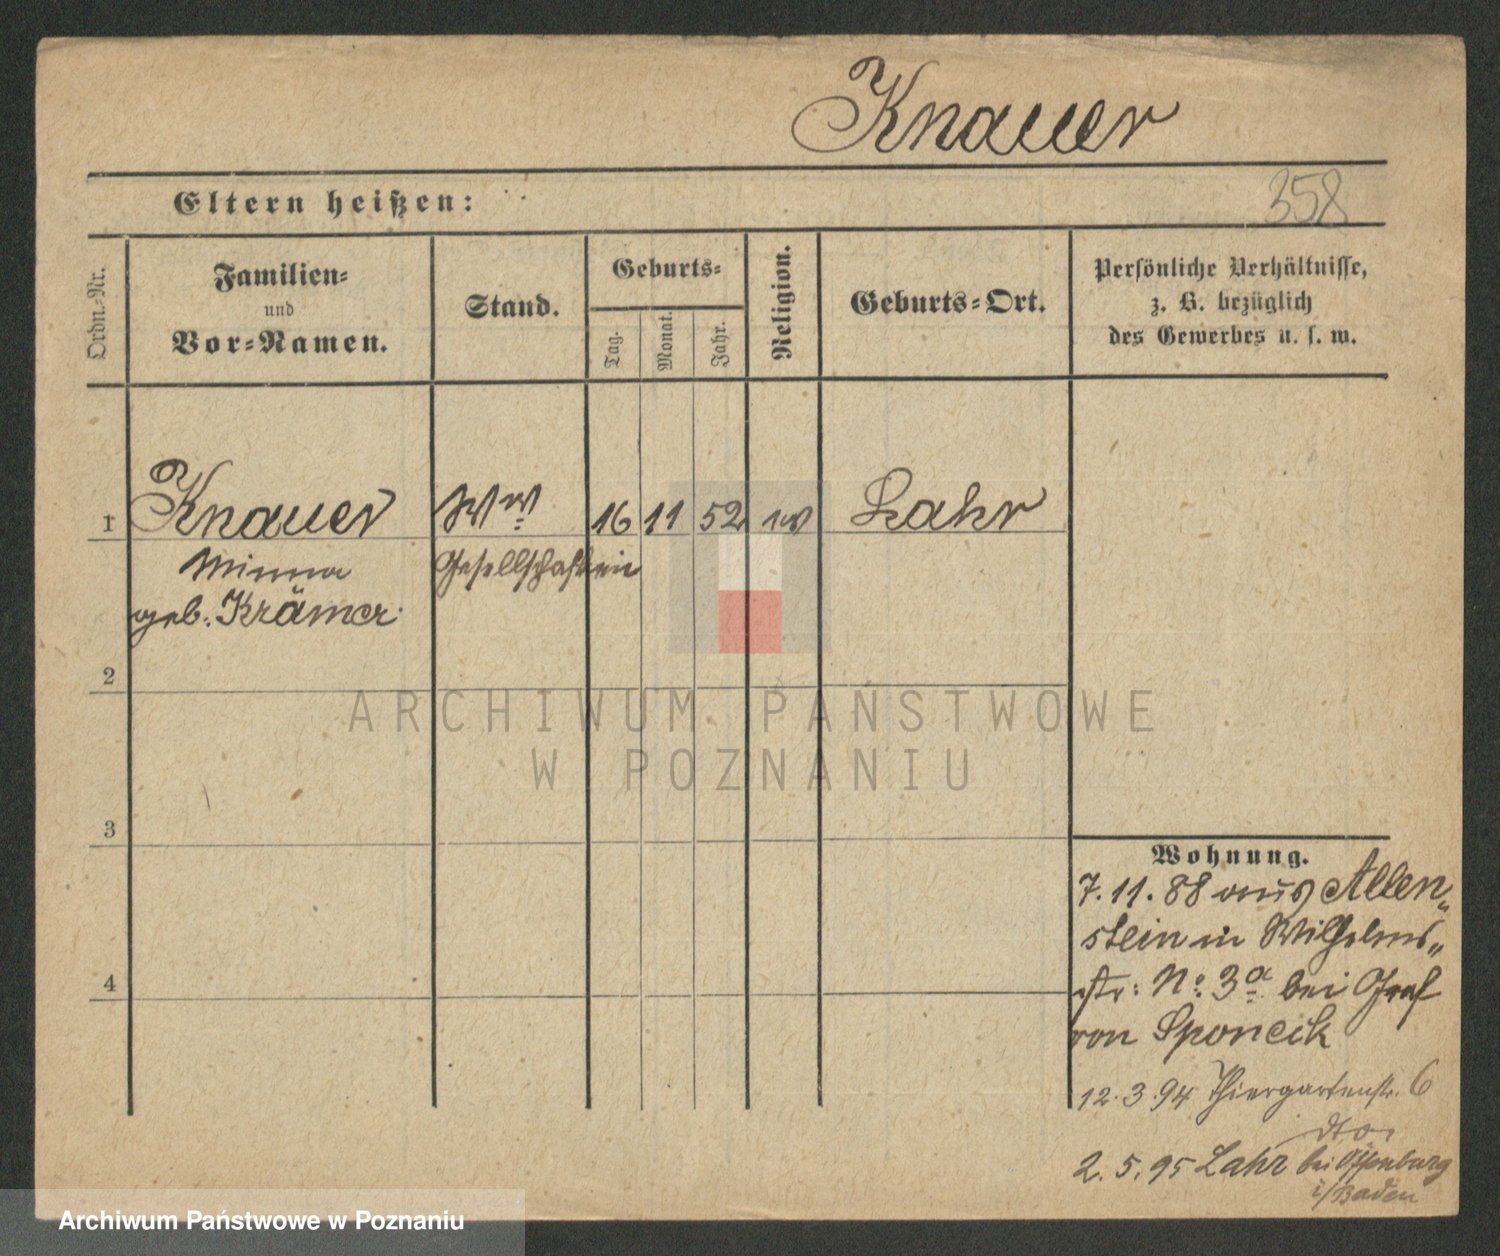 Knauer
Eltern heißen:
358
Ordn.-Nr.
Familien-
und
Vor-Namen.
Stand.
Geburts-
Tag.
Monat.
Jahr.
Religion.
Geburts-Ort.
Persönliche Verhältnisse,
z. B. bezüglich
des Gewerbes u. s. w.
1
Knauer Ww 16 11 52 Lahr
Minna Gesellschafterin
geb. Krämer
2
3
4
Wohnung.
7.11.88 aus Allen„
stein in Wilhelms„
str: No 3a bei Graf
von Sponeck
12.3.94 Thiergartenstr. 6
dto.
2.5.95 Lahr bei Offenburg
i/Baden
ARCHIWUM PAŃSTWOWE
W POZNANIU
Archiwum Państwowe w Poznaniu